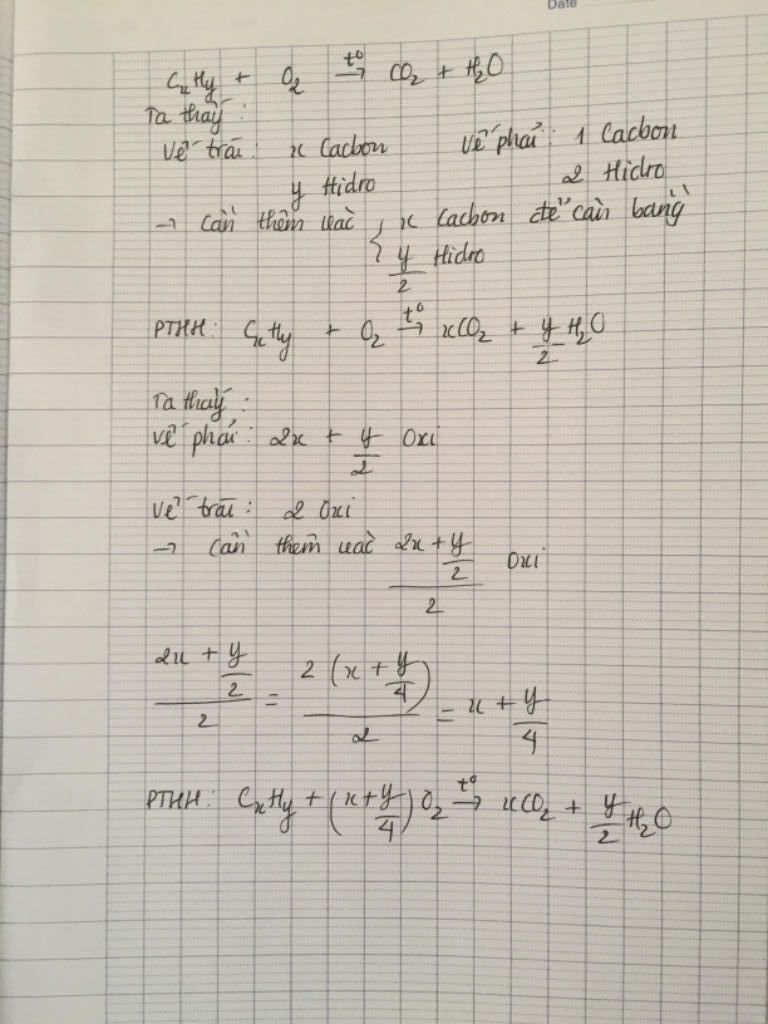 Date
CxHy + O2 t° → CO2 + H2O
Ta thấy :
Vế trái : x Cacbon Vế phải : 1 Cacbon
y Hidro 2 Hidro
→ Cần thêm { x Cacbon để cân bằng
y/2 Hidro
PTHH : CxHy + O2 t° → xCO2 + y/2 H2O
Ta thấy :
Vế phải : 2x + y/2 Oxi
Vế trái : 2 Oxi
→ Cần thêm (2x + y/2)/2 Oxi
(2x + y/2)/2 = 2(x + y/4)/2 = x + y/4
PTHH : CxHy + (x + y/4) O2 t° → xCO2 + y/2 H2O